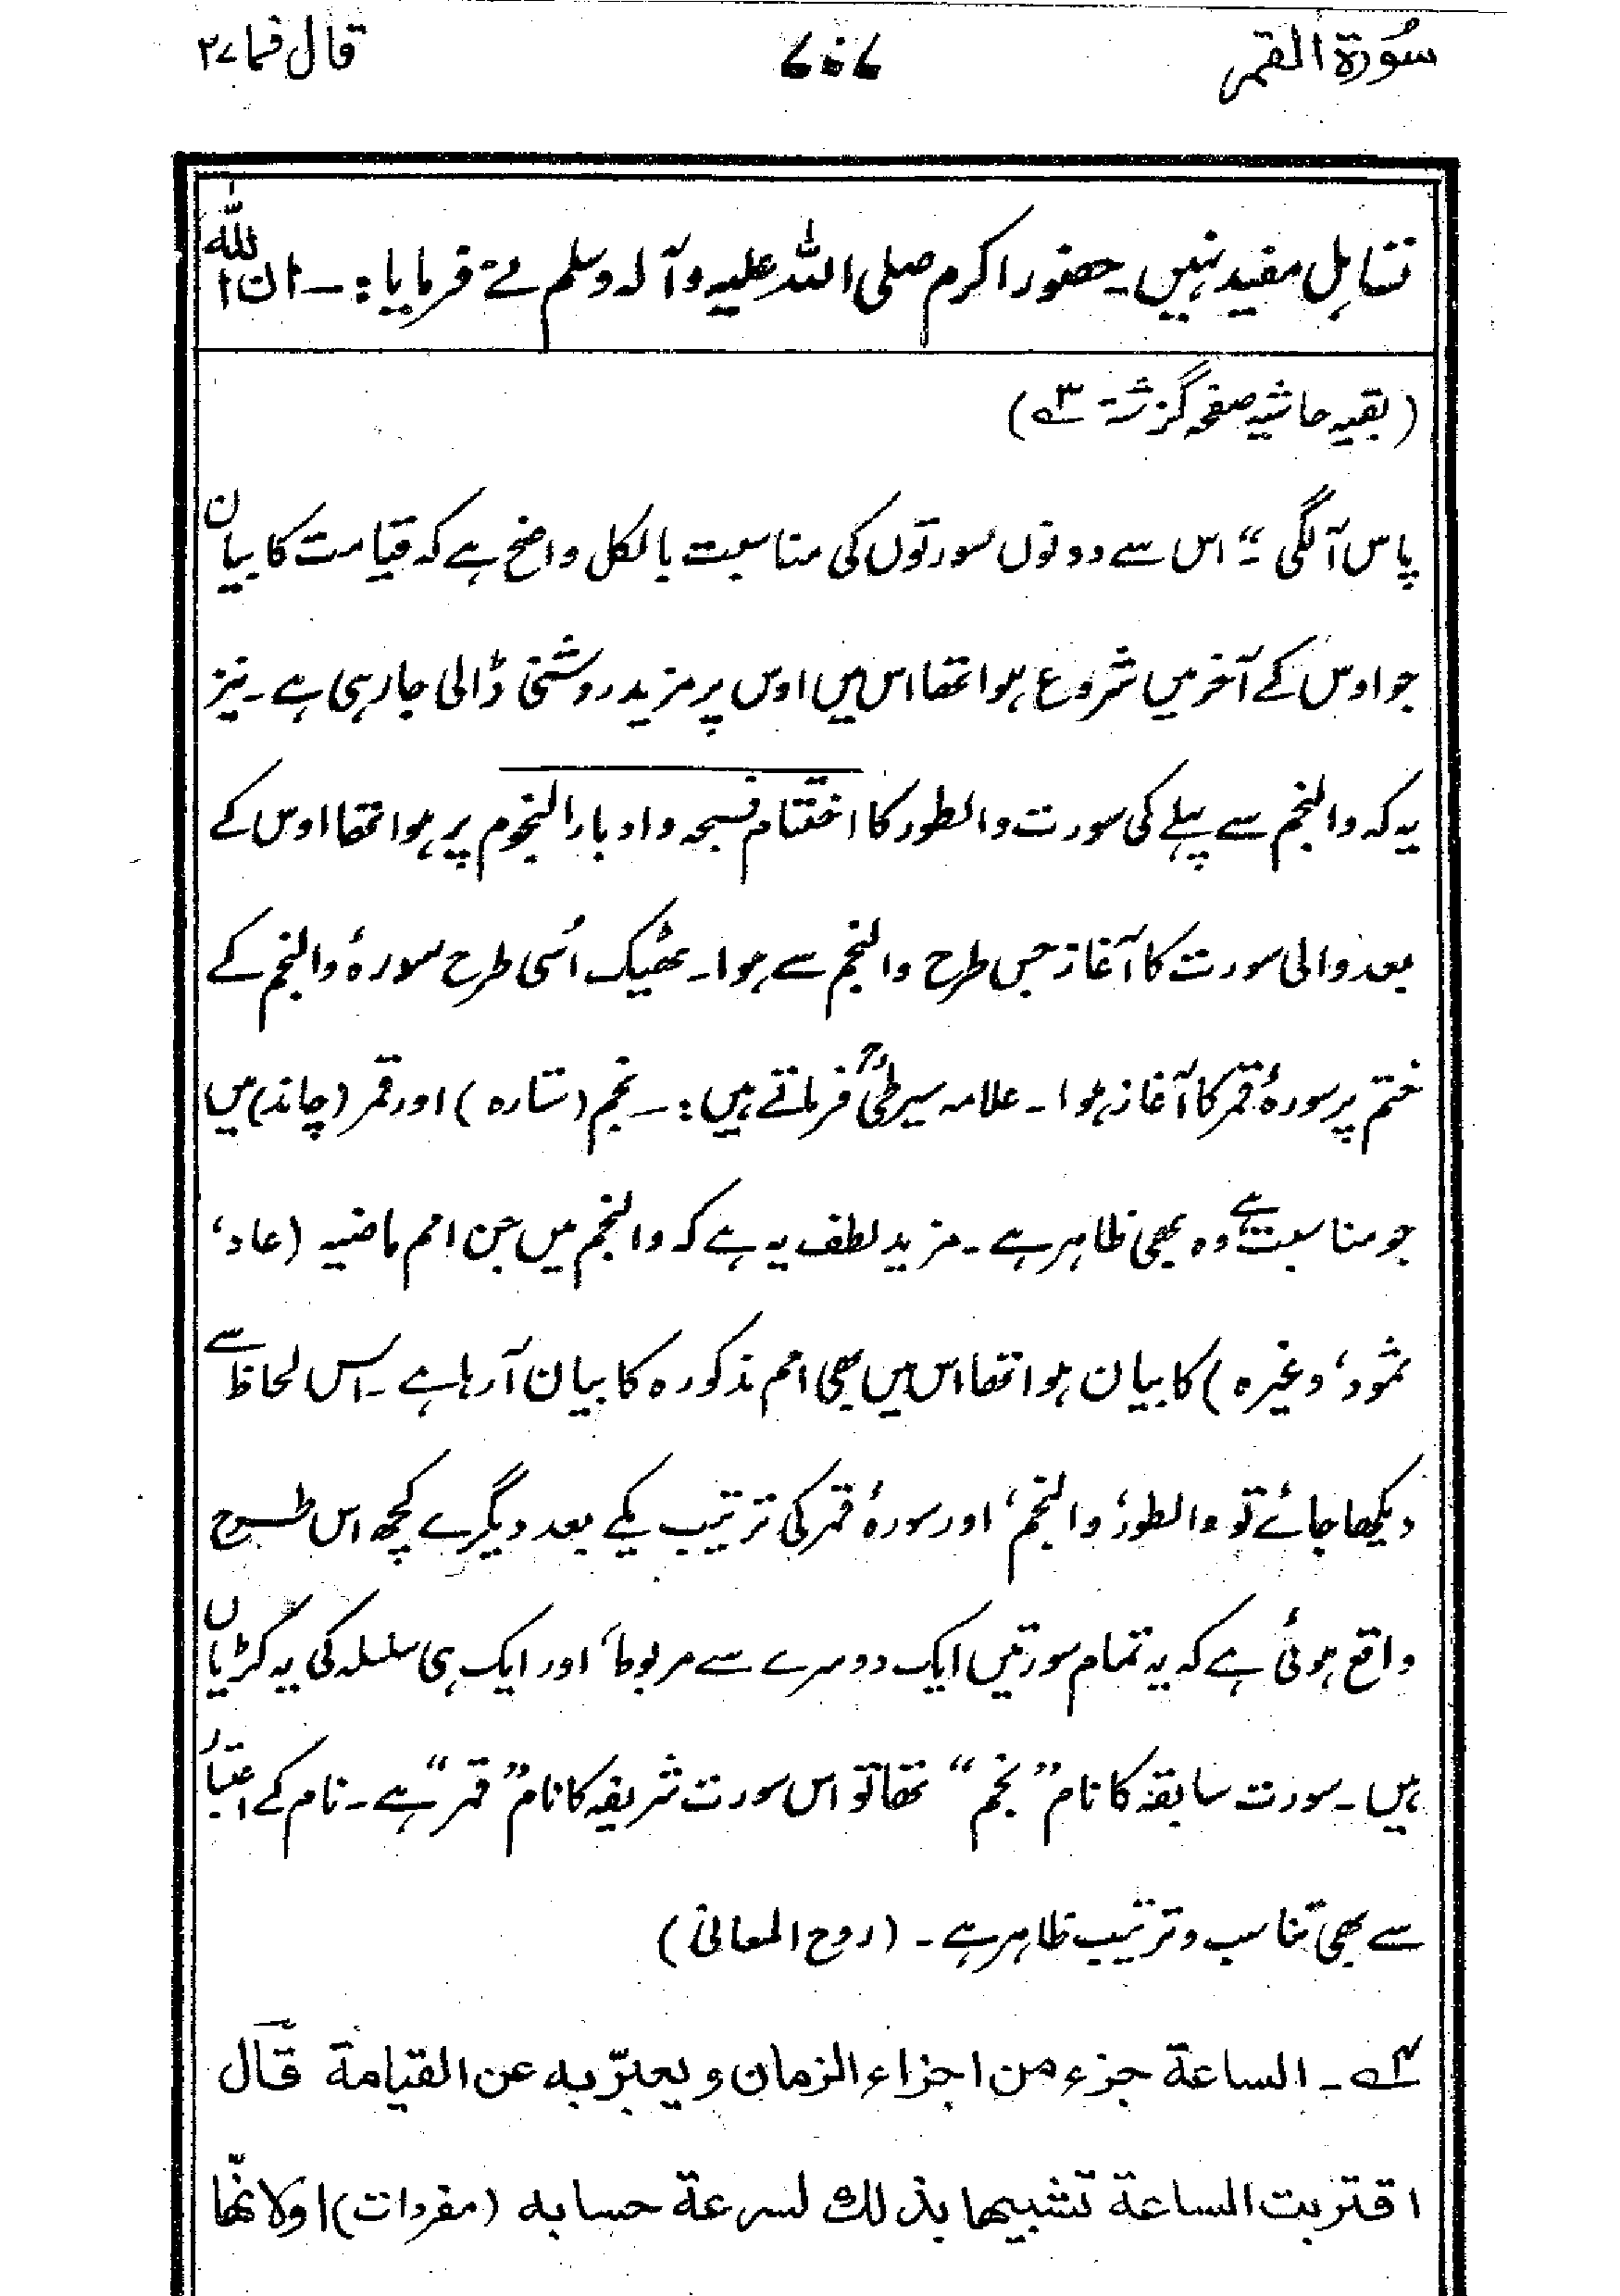 سُورۃ القمر ۷۰۷ قال فما ۲۷
تساہل مفید نہیں۔ حضور اکرم صلی اللہ علیہ وآلہ وسلم نے فرمایا:۔ ان اللّٰہ
(بقیہ حاشیہ صفحہ گزشتہ ۳؂)
پاس آلگی۔“ اس سے دونوں سورتوں کی مناسبت بالکل واضح ہے کہ قیامت کا بیان
جو اوس کے آخر میں شروع ہوا تھا اس میں اوس پر مزید روشنی ڈالی جا رہی ہے۔ نیز
یہ کہ والنجم سے پہلے کی سورت والطور کا اختتام فسبحہ وادبار النجوم پر ہوا تھا اوس کے
بعد والی سورت کا آغاز جس طرح والنجم سے ہوا۔ ٹھیک اُسی طرح سورۂ والنجم کے
ختم پر سورۂ قمر کا آغاز ہوا۔ علامہ سیوطیؒ فرماتے ہیں:۔ نجم (ستارہ) اور قمر (چاند) میں
جو مناسبت ہے وہ بھی ظاہر ہے۔ مزید لطف یہ ہے کہ والنجم میں جن امم ماضیہ (عاد،
ثمود، وغیرہ) کا بیان ہوا تھا اس میں بھی امم مذکورہ کا بیان آ رہا ہے۔ اس لحاظ سے
دیکھا جائے تو والطور، والنجم، اور سورۂ قمر کی ترتیب یکے بعد دیگرے کچھ اس طرح
واقع ہوئی ہے کہ یہ تمام سورتیں ایک دوسرے سے مربوط، اور ایک ہی سلسلہ کی یہ کڑیاں
ہیں۔ سورت سابقہ کا نام ”نجم“ تھا تو اس سورت شریفہ کا نام ”قمر“ ہے۔ نام کے اعتبار
سے بھی تناسب و ترتیب ظاہر ہے۔ (روح المعانی)
۴؂۔ الساعة جزء من اجزاء الزمان و یعبّر به عن القیامة قال
اقتربت الساعة تشبیها بذلك لسرعة حسابه (مفردات) اولانّها